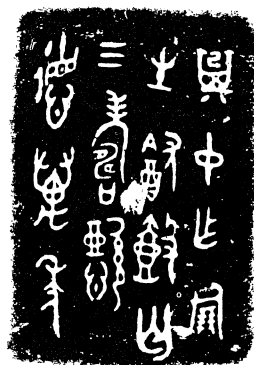 㠱中乍倗
生飲壺匄
三壽懿
德萬年